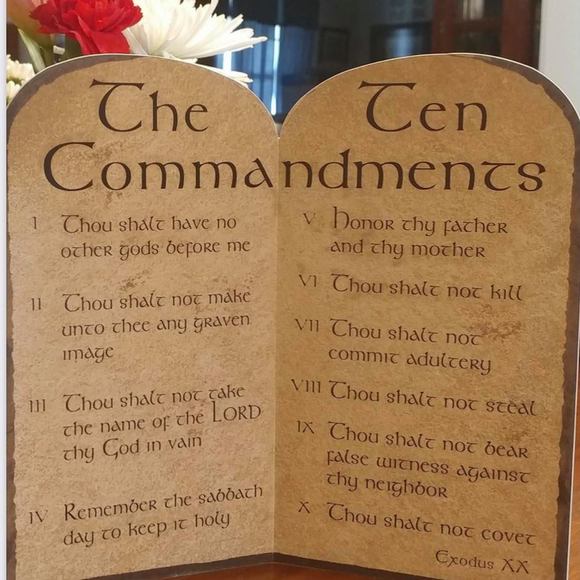 The Ten
Commandments
I Thou shalt have no
other gods before me
II Thou shalt not make
unto thee any graven
image
III Thou shalt not take
the name of the LORD
thy God in vain
IV Remember the sabbath
day to keep it holy
V Honor thy father
and thy mother
VI Thou shalt not kill
VII Thou shalt not
commit adultery
VIII Thou shalt not steal
IX Thou shalt not bear
false witness against
thy neighbor
X Thou shalt not covet
Exodus XX